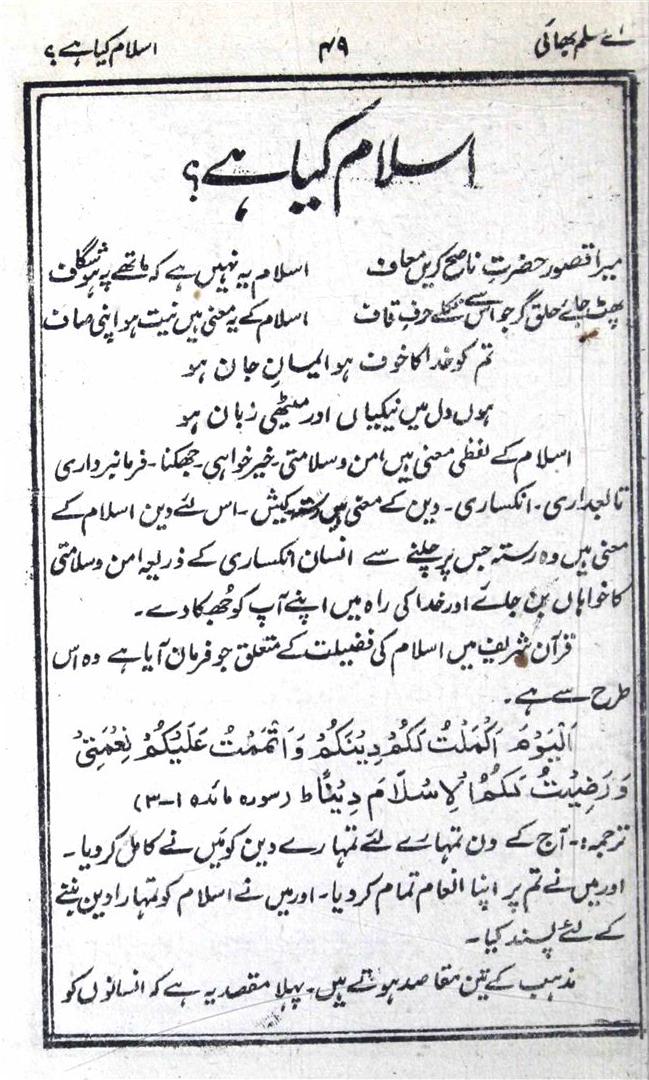 اے مسلم بھائی ۴۹ اسلام کیا ہے؟
اسلام کیا ہے؟
میرا قصور حضرتِ ناصح کریں معاف اسلام یہ نہیں ہے کہ ماتھے پہ ہو شگاف
پھٹ جائے حلق گر جو اس سے نکلے حرفِ قاف اسلام کے یہ معنی ہیں نیت ہو اپنی صاف
تم کو خدا کا خوف ہو ایمان جان ہو
ہوں دل میں نیکیاں اور میٹھی زبان ہو
اسلام کے لفظی معنی ہیں امن و سلامتی۔ خیر خواہی۔ جھکنا۔ فرمانبرداری
تابعداری۔ انکساری۔ دین کے معنی ہیں رستہ کیش۔ اس لئے دین اسلام کے
معنی ہیں وہ رستہ جس پر چلنے سے انسان انکساری کے ذریعہ امن و سلامتی
کا خواہاں بن جائے اور خدا کی راہ میں اپنے آپ کو جُھکا دے۔
قرآن شریف میں اسلام کی فضیلت کے متعلق جو فرمان آیا ہے وہ اس
طرح سے ہے۔
اَلْیَوْمَ اَکْمَلْتُ لَکُمْ دِیْنَکُمْ وَاَتْمَمْتُ عَلَیْکُمْ نِعْمَتِیْ
وَرَضِیْتُ لَکُمُ الْاِسْلَامَ دِیْنًا ط (سورہ مائدہ ۱-۳)
ترجمہ:- آج کے دن تمہارے لئے تمہارے دین کو میں نے کامل کر دیا۔
اور میں نے تم پر اپنا انعام تمام کر دیا۔ اور میں نے اسلام کو تمہارا دین بننے
کے لئے پسند کیا۔
مذہب کے تین مقاصد ہوتے ہیں۔ پہلا مقصد یہ ہے کہ انسانوں کو